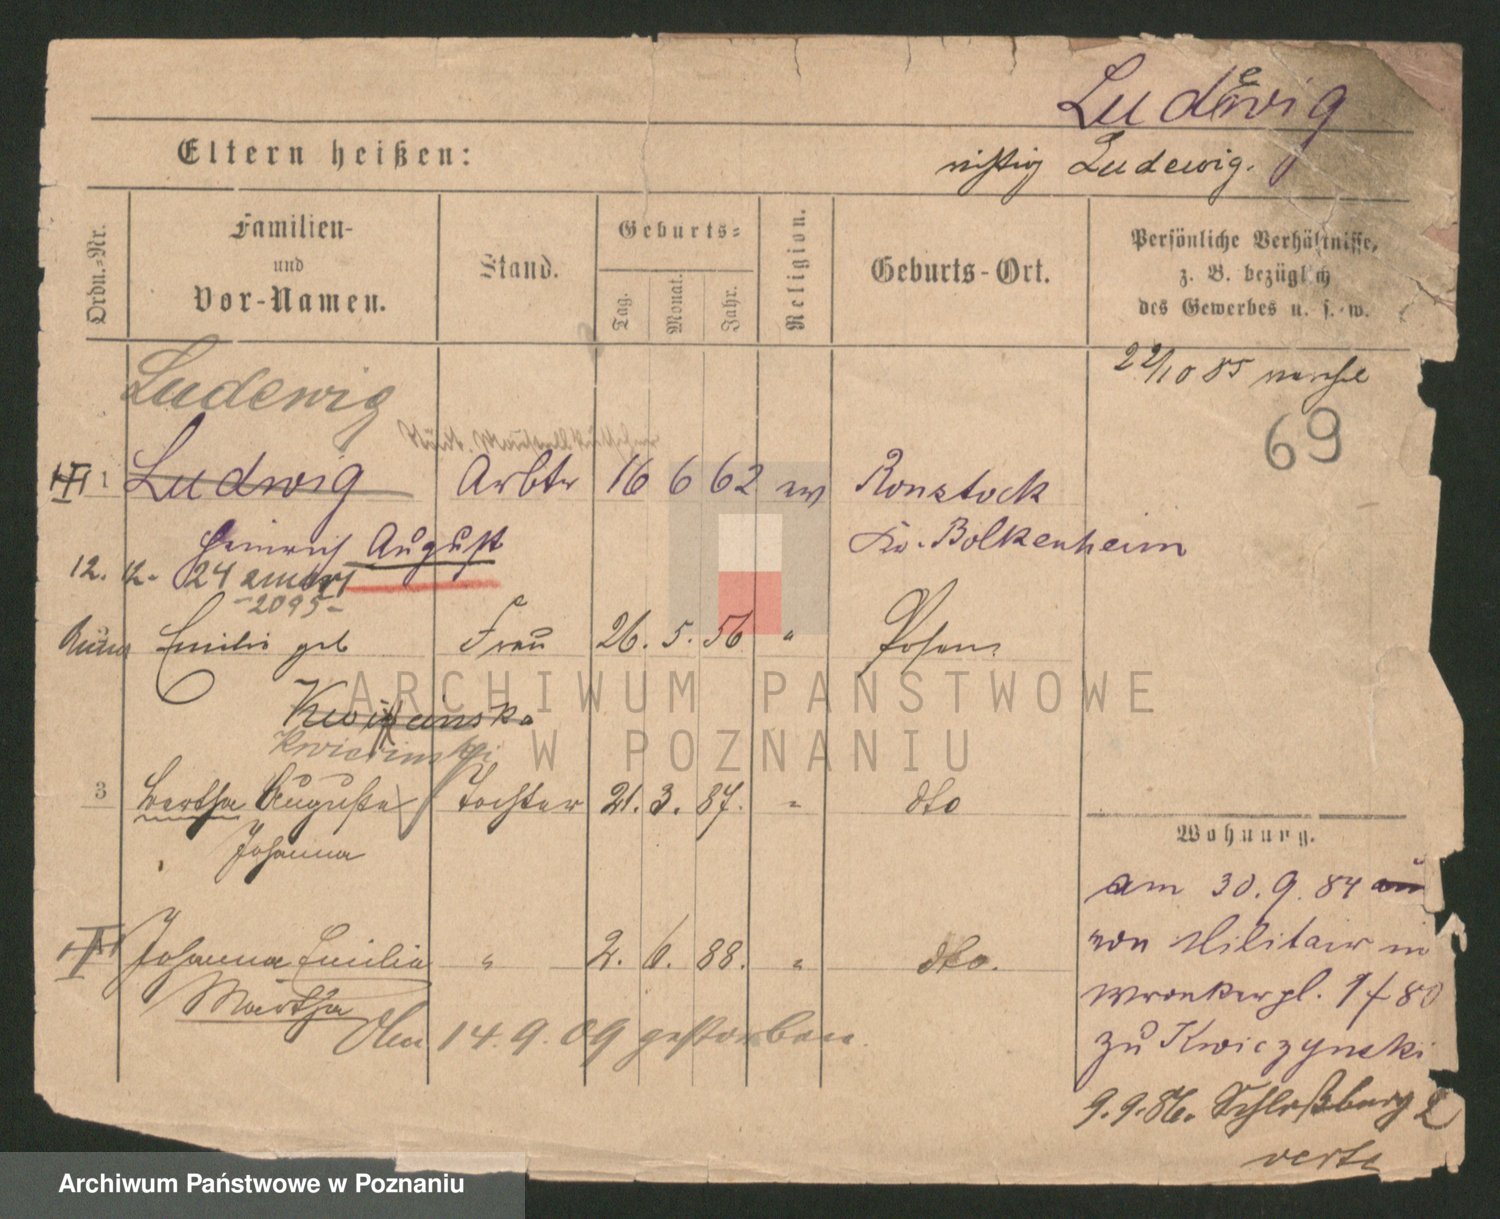 Ludewig
Eltern heißen:
richtig Ludewig.
Ordn.-Nr.
Familien-
und
Vor-Namen.
Stand.
Geburts-
Tag.
Monat.
Jahr.
Religion.
Geburts-Ort.
Persönliche Verhältnisse,
z. B. bezüglich
des Gewerbes u. s. w.
22/10 85
69
Ludewig
1 Ludwig Arbtr 16 6 62 ev Ronstock
Heinrich August Kr. Bolkenheim
12. 12. 24
-2095-
Emilie geb Frau 26. 5. 56 " Posen
Kwiecinska
Kwiecinski
3 Bertha Auguste Tochter 21. 3. 87. " dto
Johanna
Johanna Emilia " 2. 6. 88. " dto.
Martha
den 14. 9. 09 gestorben.
Wohnung.
am 30. 9. 84
von Militair in
Wronkerpl. 1 f 80
zu Kwiczynski
9. 9. 86. Schloßberg 2
verte
ARCHIWUM PAŃSTWOWE
W POZNANIU
Archiwum Państwowe w Poznaniu